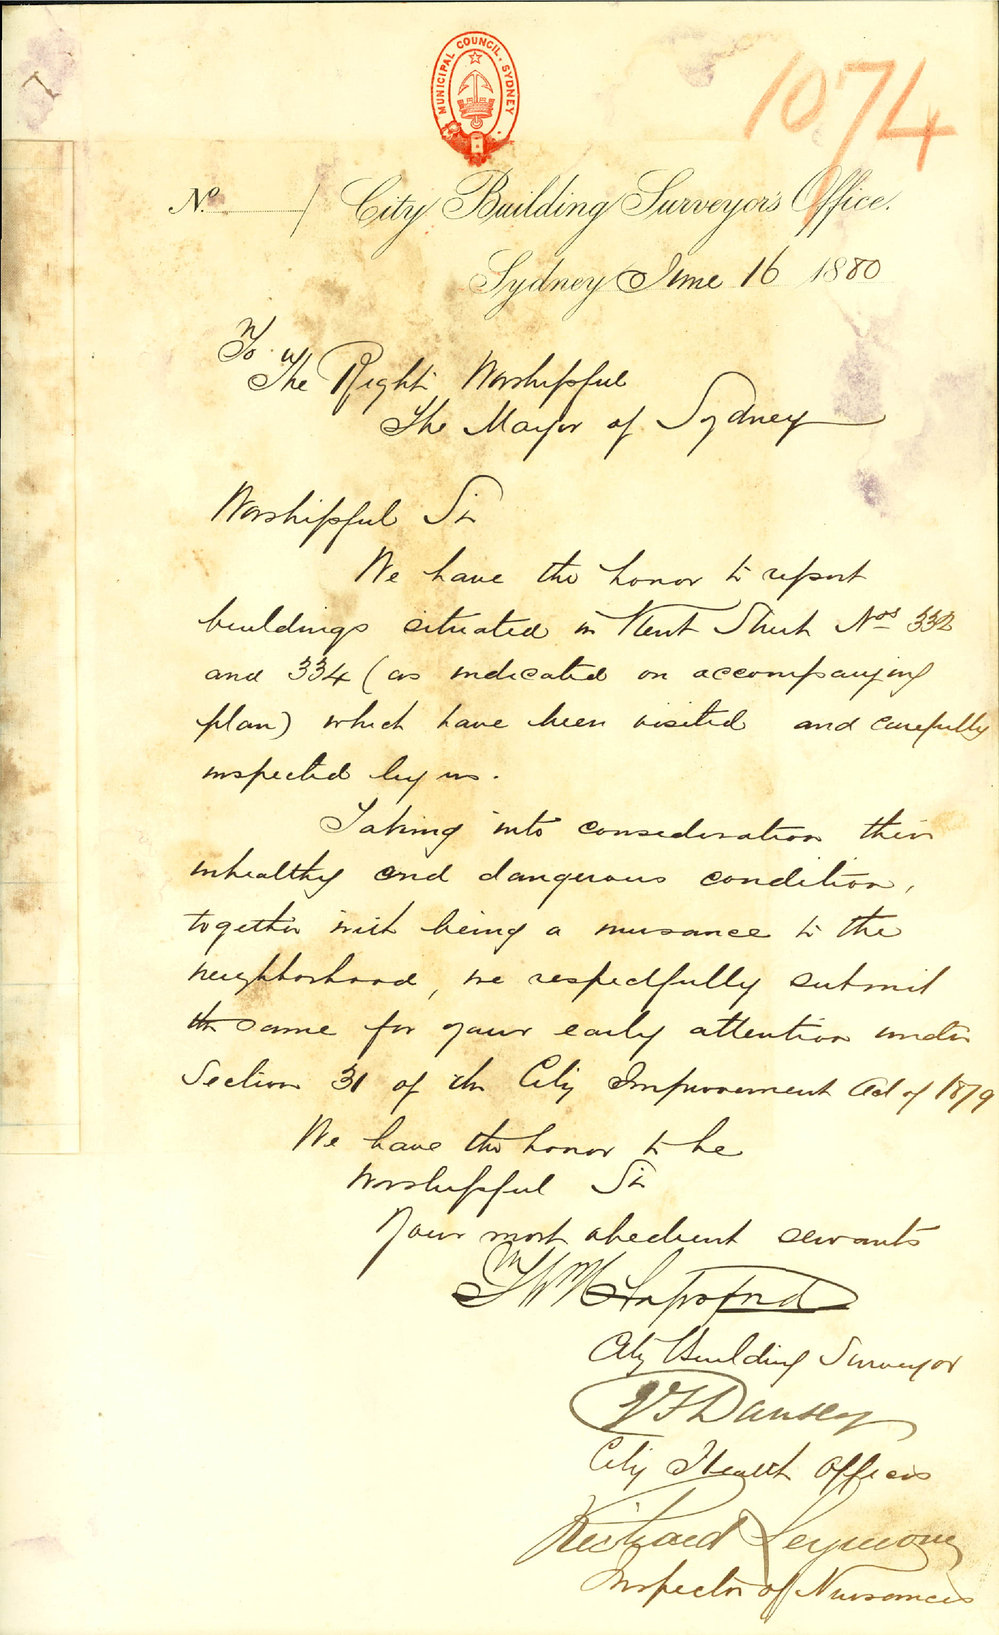 MUNICIPAL COUNCIL. SYDNEY.
1074
No. / City Building Surveyor's Office.
Sydney June 16 1880
To
The Right Worshipful
The Mayor of Sydney
Worshipful Sir
We have the honor to report
buildings situated in Kent Street Nos 332
and 334 (as indicated on accompanying
plan) which have been visited and carefully
inspected by us.
Taking into consideration their
unhealthy and dangerous condition,
together with being a nuisance to the
neighborhood, we respectfully submit
the same for your early attention under
Section 31 of the City Improvement Act of 1879
We have the honor to be
Worshipful Sir
Your most obedient servants
City Building Surveyor
Dansey
City Health Officer
Richard Seymour
Inspector of Nuisances